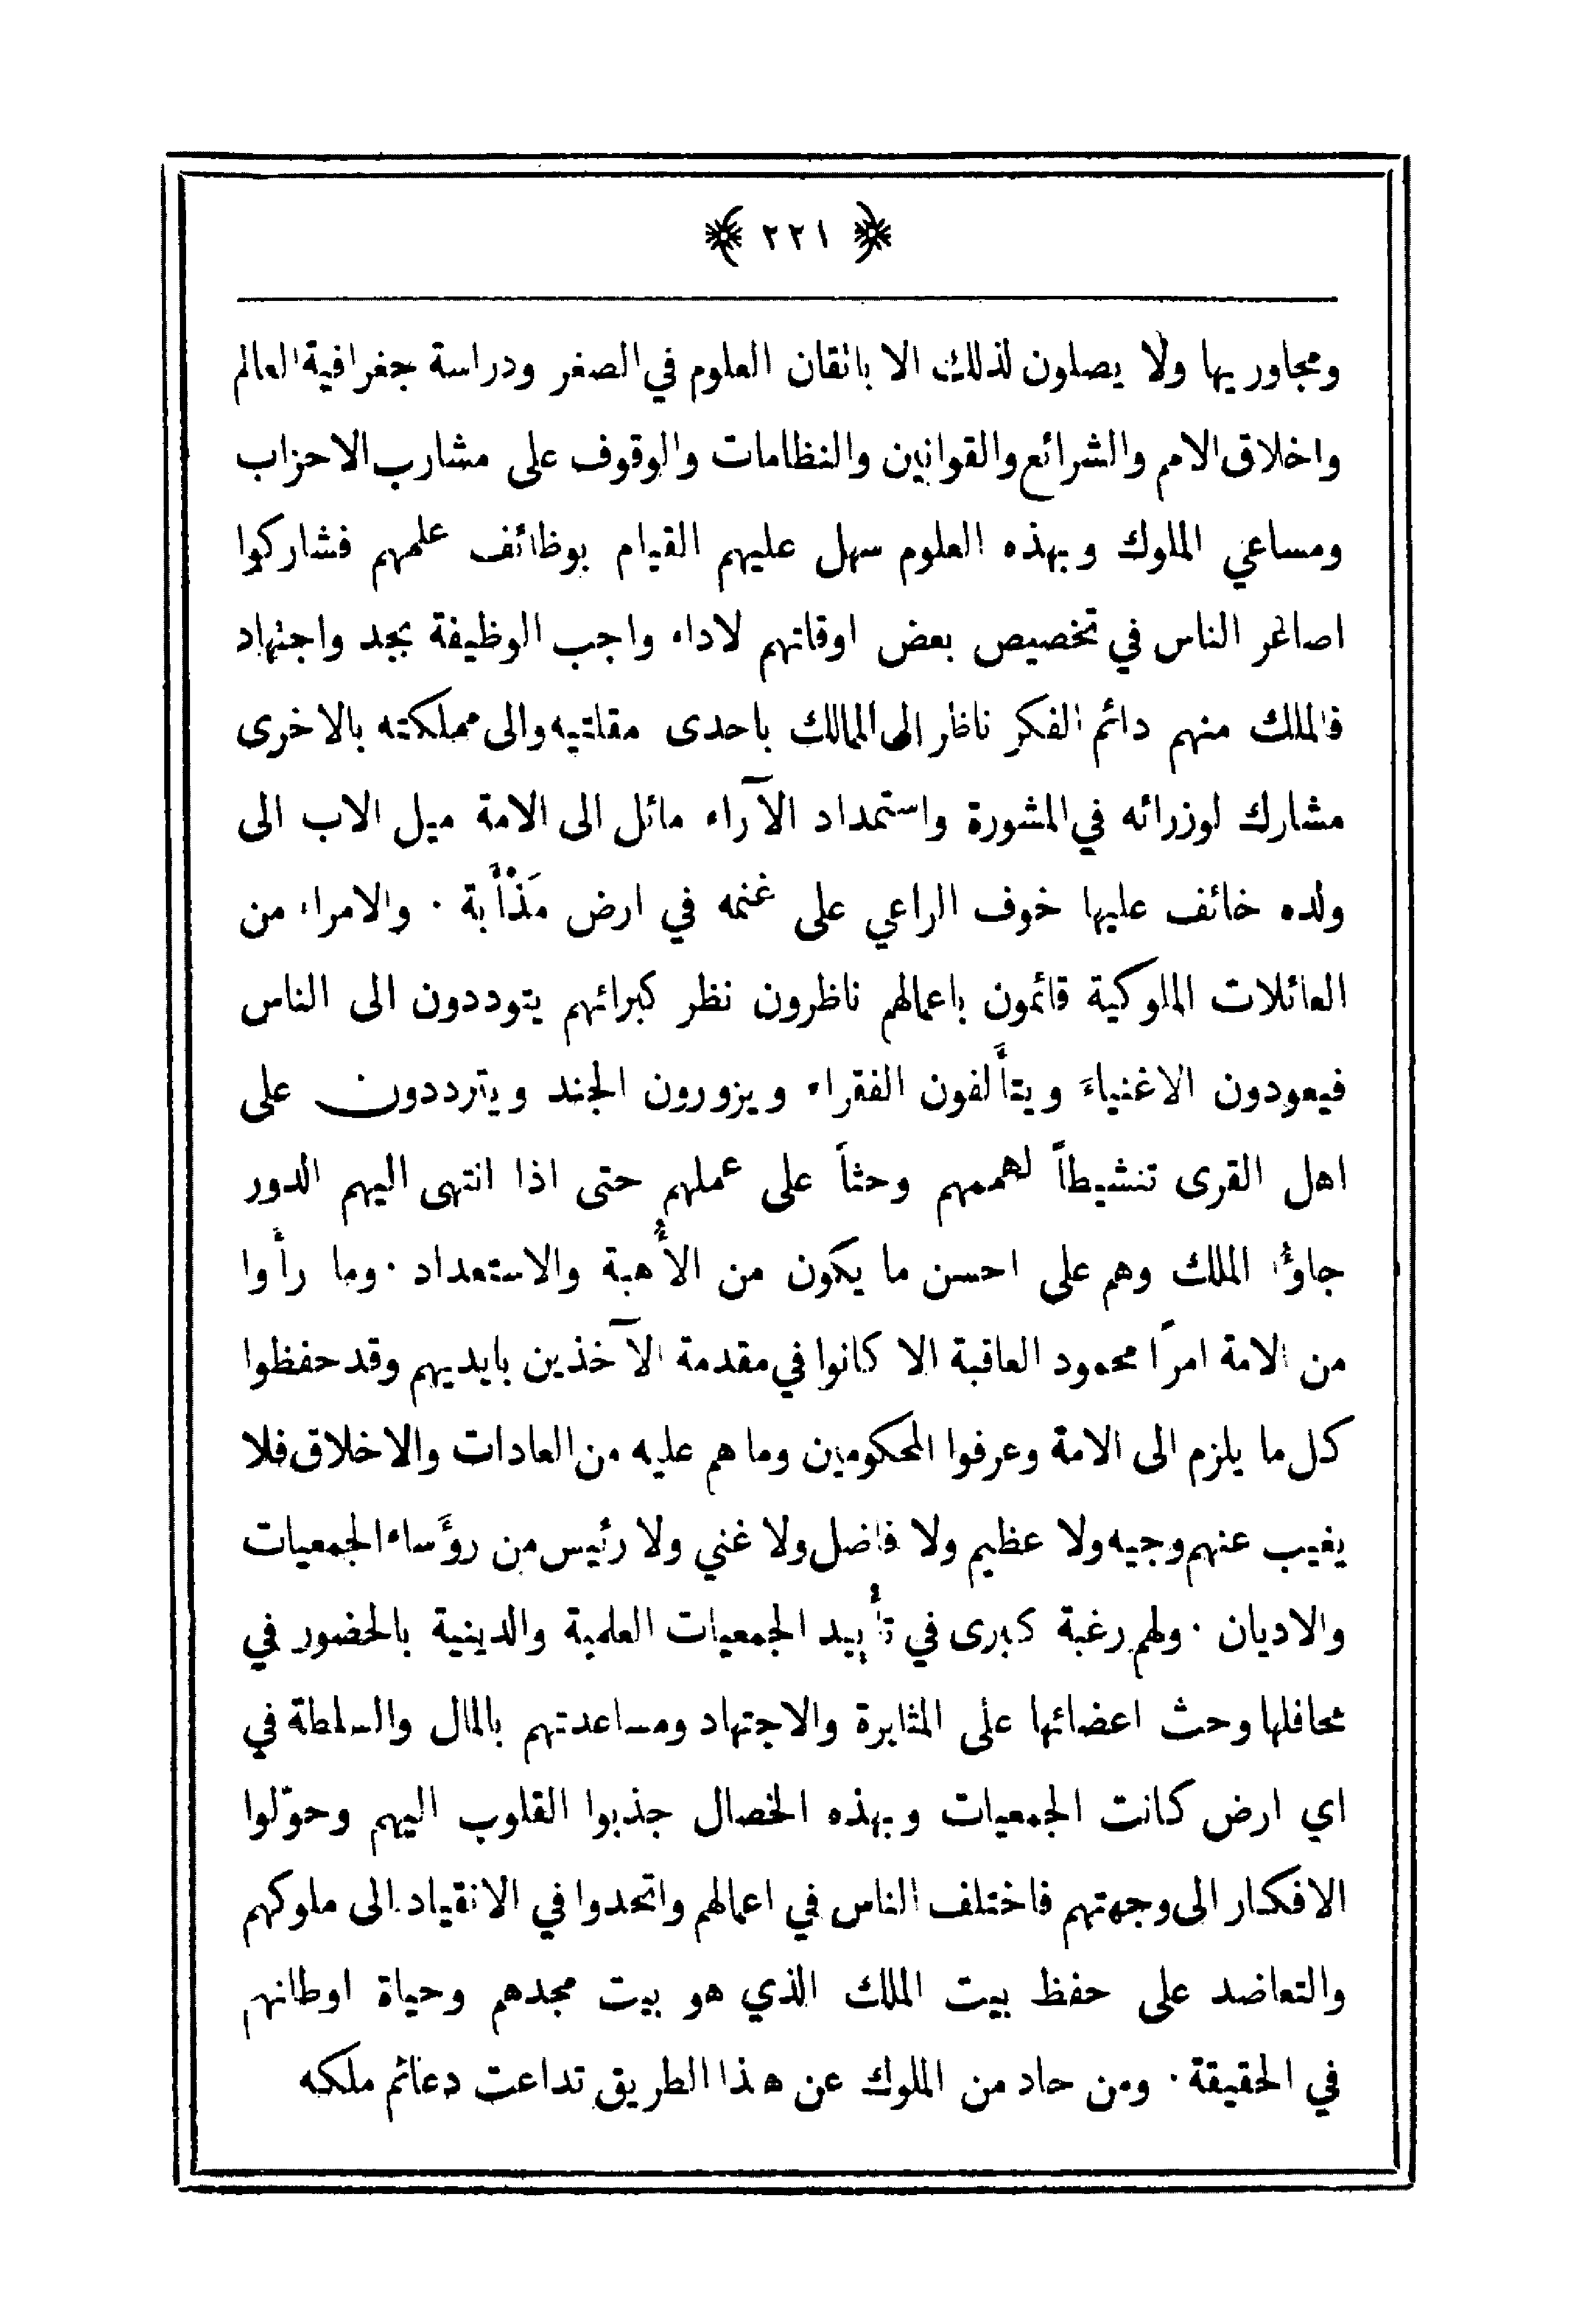 ٢٢١
ومجاوريها ولا يصلون لذلك الا باتقان العلوم في الصغر ودراسة جغرافية العالم
واخلاق الامم والشرائع والقوانين والنظامات والوقوف على مشارب الاحزاب
ومساعي الملوك وبهذه العلوم سهل عليهم القيام بوظائف علمهم فشاركوا
اصاغر الناس في تخصيص بعض اوقاتهم لاداء واجب الوظيفة بجد واجتهاد
فالملك منهم دائم الفكر ناظر الى الممالك باحدى مقلتيه والى مملكته بالاخرى
مشارك لوزرائه في المشورة واستمداد الآراء مائل الى الامة ميل الاب الى
ولده خائف عليها خوف الراعي على غنمه في ارض مَذْأَبة · والامراء من
العائلات الملوكية قائمون باعمالهم ناظرون نظر كبرائهم يتوددون الى الناس
فيعودون الاغنياءَ ويتأَلفون الفقراء ويزورون الجند ويترددون على
اهل القرى تنشيطاً لهممهم وحثاً على عملهم حتى اذا انتهى اليهم الدور
جاؤُا الملك وهم على احسن ما يكون من الأُهبة والاستعداد · وما رأَوا
من الامة امرًا محمود العاقبة الا كانوا في مقدمة الآخذين بايديهم وقد حفظوا
كل ما يلزم الى الامة وعرفوا المحكومين وما هم عليه من العادات والاخلاق فلا
يغيب عنهم وجيه ولا عظيم ولا فاضل ولا غني ولا رئيس من رؤَساء الجمعيات
والاديان · ولهم رغبة كبرى في تأْييد الجمعيات العلمية والدينية بالحضور في
محافلها وحث اعضائها على المثابرة والاجتهاد ومساعدتهم بالمال والسلطة في
اي ارض كانت الجمعيات وبهذه الخصال جذبوا القلوب اليهم وحوّلوا
الافكار الى وجهتهم فاختلف الناس في اعمالهم واتحدوا في الانقياد الى ملوكهم
والتعاضد على حفظ بيت الملك الذي هو بيت مجدهم وحياة اوطانهم
في الحقيقة · ومن حاد من الملوك عن هذا الطريق تداعت دعائم ملكه